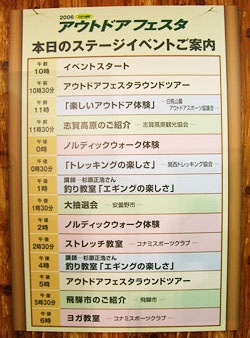 2006
アウトドアフェスタ
本日のステージイベントご案内
午前 10時 イベントスタート
午前 10時30分 アウトドアフェスタラウンドツアー
午前 11時 「楽しいアウトドア体験」 ―白馬山麓 アウトドアスポーツ協議会―
午前 11時30分 志賀高原のご紹介 ―志賀高原観光協会―
午後 0時 ノルディックウォーク体験
午後 0時30分 「トレッキングの楽しさ」 ―関西トレッキング協会―
午後 1時 講師―杉原正浩さん
釣り教室「エギングの楽しさ」
午後 1時30分 大抽選会 ―安曇野市―
午後 2時 ノルディックウォーク体験
午後 2時30分 ストレッチ教室 ―コナミスポーツクラブ―
午後 4時 講師―杉原正浩さん
釣り教室「エギングの楽しさ」
午後 5時 アウトドアフェスタラウンドツアー
午後 5時30分 飛騨市のご紹介 ―飛騨市―
午後 6時 ヨガ教室 ―コナミスポーツクラブ―